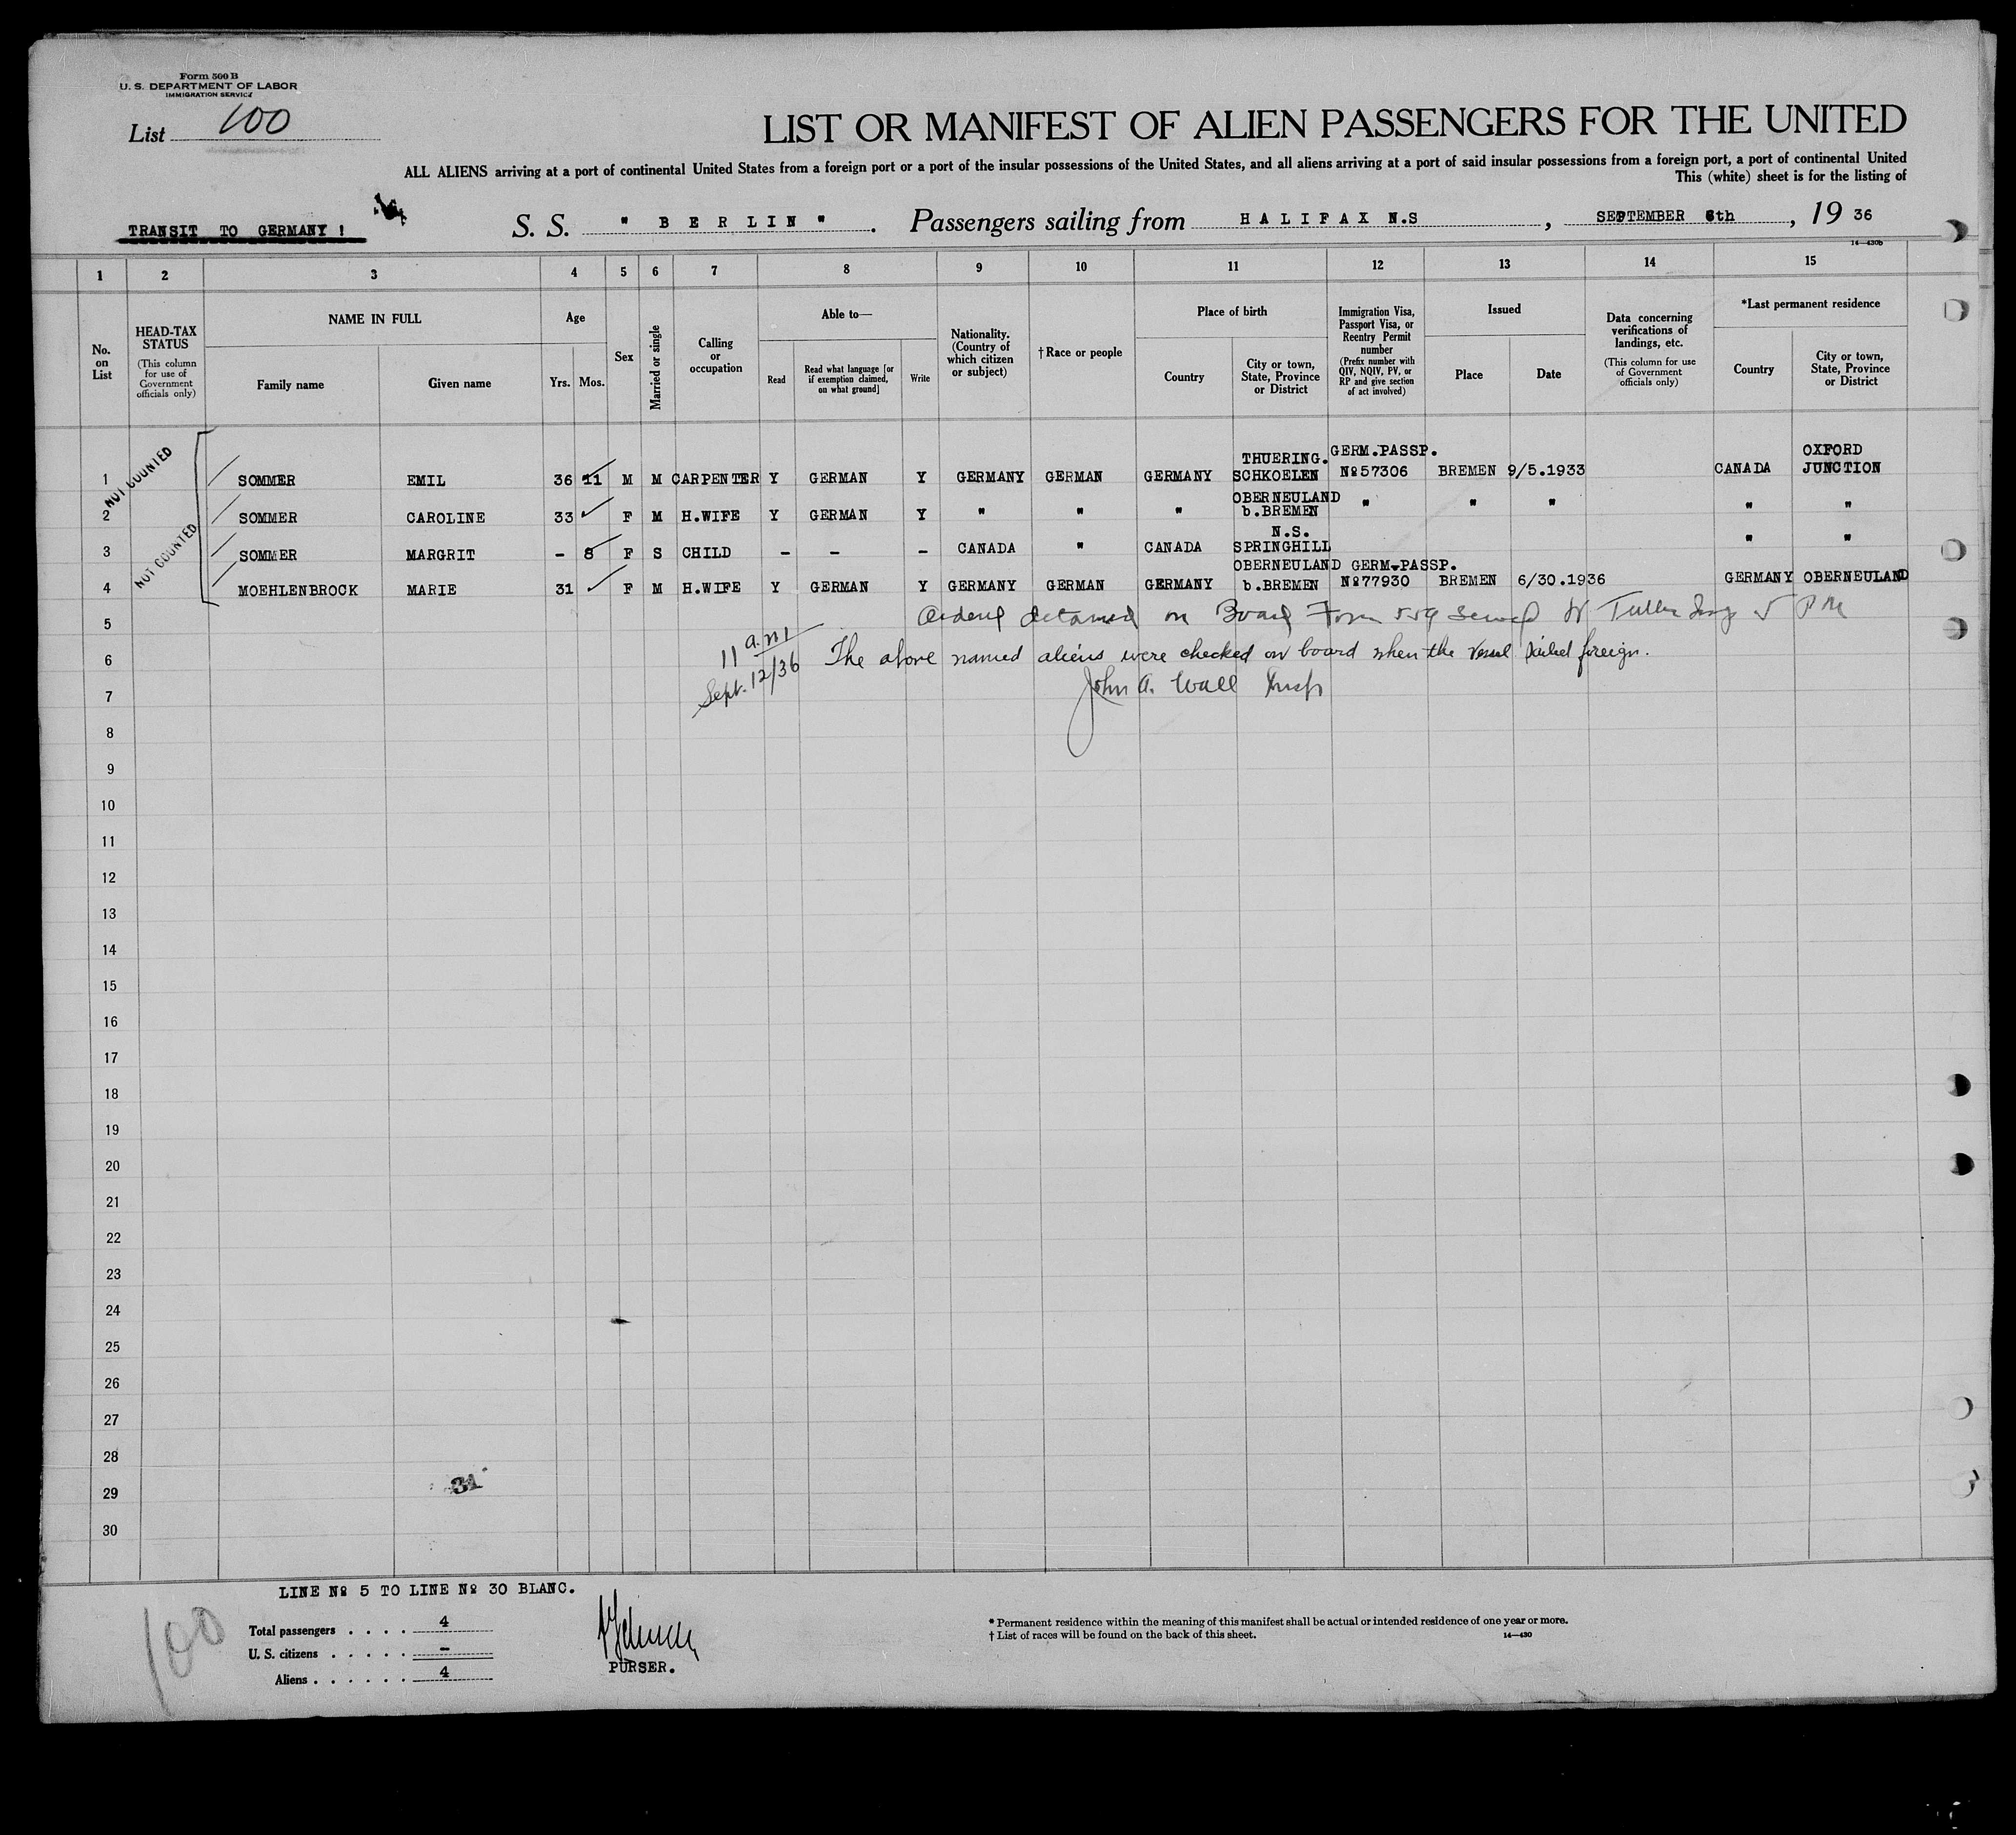 Form 500 B
U. S. DEPARTMENT OF LABOR
IMMIGRATION SERVICE
List 100
LIST OR MANIFEST OF ALIEN PASSENGERS FOR THE UNITED
ALL ALIENS arriving at a port of continental United States from a foreign port or a port of the insular possessions of the United States, and all aliens arriving at a port of said insular possessions from a foreign port, a port of continental United
This (white) sheet is for the listing of
TRANSIT TO GERMANY !
S. S. " BERLIN ". Passengers sailing from HALIFAX N.S , SEPTEMBER 6th , 19 36
14—430b
1 2 3 4 5 6 7 8 9 10 11 12 13 14 15
No. on List
HEAD-TAX STATUS
(This column for use of Government officials only)
NAME IN FULL
Family name
Given name
Age
Yrs. Mos.
Sex
Married or single
Calling or occupation
Able to—
Read
Read what language [or if exemption claimed, on what ground]
Write
Nationality. (Country of which citizen or subject)
†Race or people
Place of birth
Country
City or town, State, Province or District
Immigration Visa, Passport Visa, or Reentry Permit number
(Prefix number with QIV, NQIV, PV, or RP and give section of act involved)
Issued
Place
Date
Data concerning verifications of landings, etc.
(This column for use of Government officials only)
*Last permanent residence
Country
City or town, State, Province or District
NOT COUNTED
NOT COUNTED
1 SOMMER EMIL 36 11 M M CARPENTER Y GERMAN Y GERMANY GERMAN GERMANY THUERING. SCHKOELEN GERM.PASSP. №57306 BREMEN 9/5.1933 CANADA OXFORD JUNCTION
2 SOMMER CAROLINE 33 F M H.WIFE Y GERMAN Y " " " OBERNEULAND b.BREMEN " " " " "
3 SOMMER MARGRIT - 8 F S CHILD - - - CANADA " CANADA N.S. SPRINGHILL " "
4 MOEHLENBROCK MARIE 31 F M H.WIFE Y GERMAN Y GERMANY GERMAN GERMANY OBERNEULAND b.BREMEN GERM.PASSP. №77930 BREMEN 6/30.1936 GERMANY OBERNEULAND
5 Ordered detained on Board Form 559 served 5 PM
6 11 a.m. Sept. 12/36 The above named aliens were checked on board when the vessel sailed foreign.
7 John A. Wall Insp
8
9
10
11
12
13
14
15
16
17
18
19
20
21
22
23
24
25
26
27
28
29
30
31
LINE № 5 TO LINE № 30 BLANC.
100
Total passengers . . . . 4
U. S. citizens . . . . . -
Aliens . . . . . . 4
PURSER.
* Permanent residence within the meaning of this manifest shall be actual or intended residence of one year or more.
† List of races will be found on the back of this sheet.
14—430